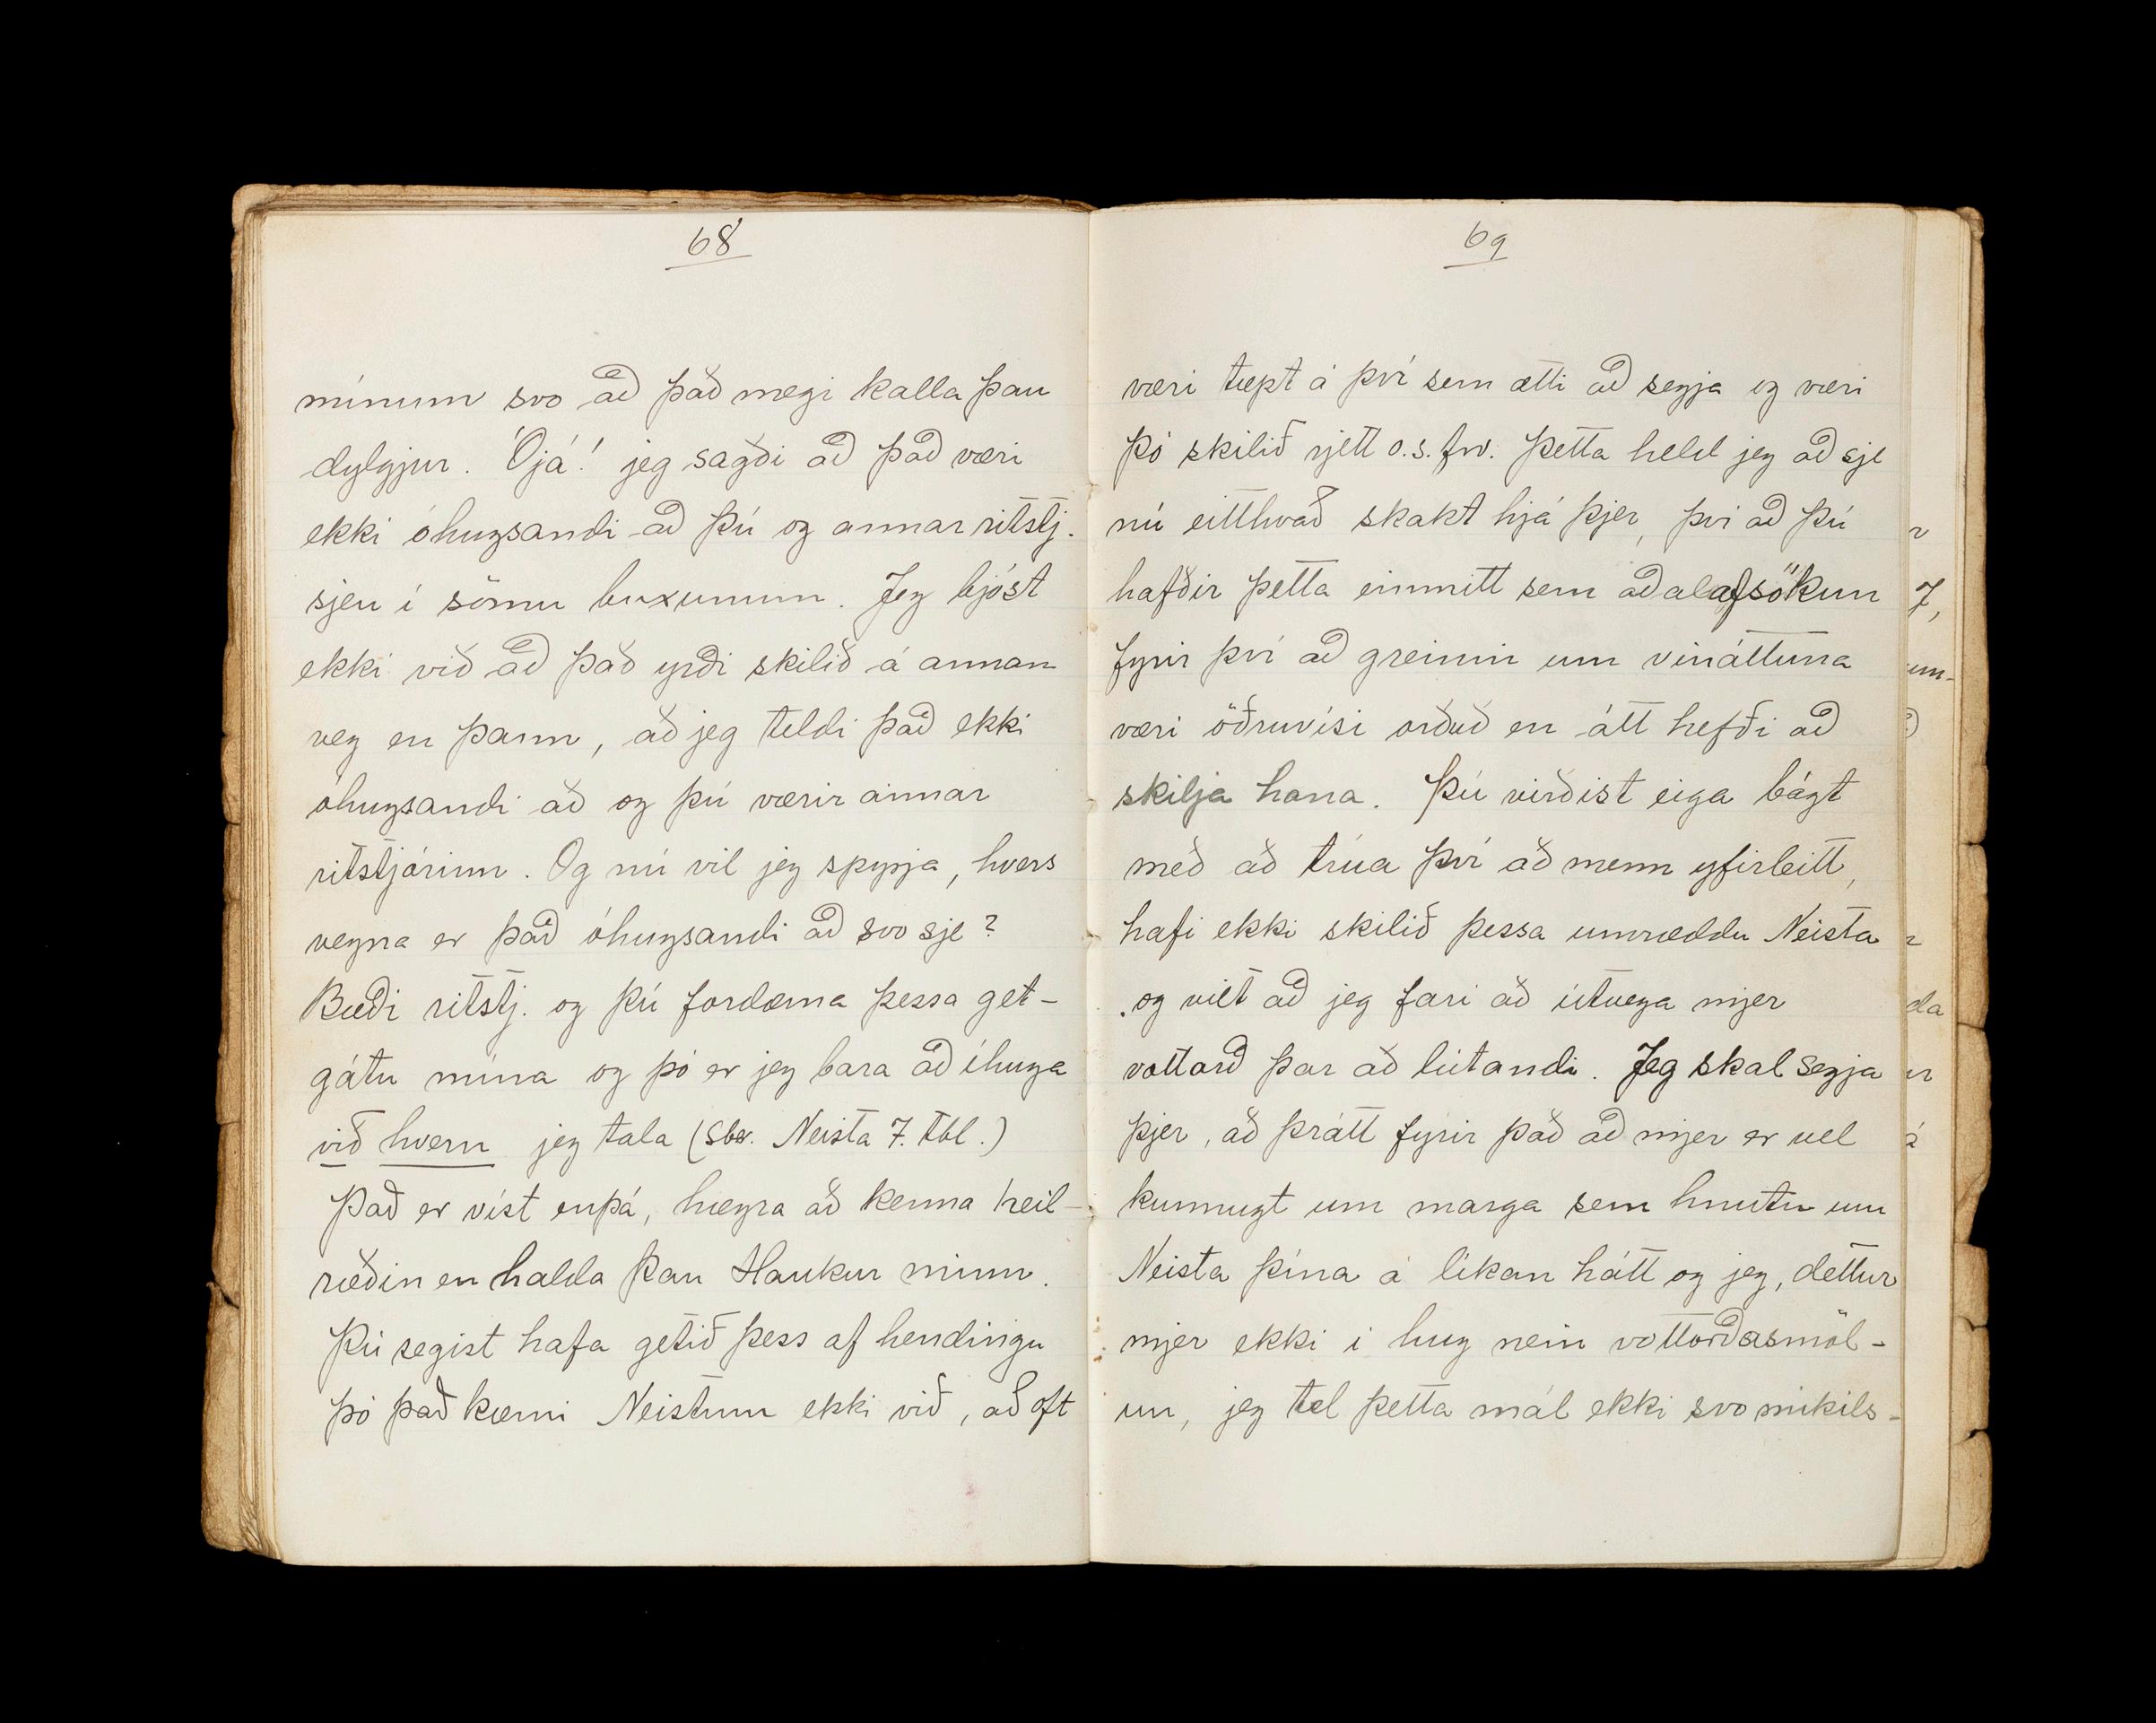 68
mínum svo að það mægi kalla þau
dylgjur. Ójá! jeg sagði að það væri
ekki óhugsandi að þú og annar ritstj.
sjeu í sömu buxunum. Jeg bjóst
ekki við að það yrði skilið á annan
veg en þann, að jeg teldi það ekki
óhugsandi að og þú værir annar
ritstjórinn. Og nú vil jeg spyrja, hvers
vegna er það óhugsandi að svo sje?
Bæði ritstj. og þú fordæma þessa get-
gátu mína og þó er jeg bara að íhuga
við hvern jeg tala (sbr. Neista 7. tbl.)
Það er víst enþá, hægra að kenna heil-
ræðin en halda þau Haukur minn.
Þú segist hafa getið þess af hendingu
þó það kæmi Neistum ekki við, að oft
69
væri tæpt á því sem ætti að segja og væri
þó skilið rjett o.s.frv. Þetta held jeg að sje
nú eitthvað skakt hjá þjer, því að þú
hafðir þetta einmitt sem aðalafsökun
fyrir því að greinin um vináttuna
væri öðruvísi orðuð en átt hefði að
skilja hana. Þú virðist eiga bágt
með að trúa því að menn yfirleitt,
hafi ekki skilið þessa umræddu Neista
og vilt að jeg fari að útvega mjer
vottorð þar að lútandi. Jeg skal segja
þjer, að þrátt fyrir það að mjer er vel
kunnugt um marga sem hnutu um
Neista þína á líkan hátt og jeg, dettur
mjer ekki í hug nein vottorðasmöl-
un, jeg tel þetta mál ekki svo mikils-